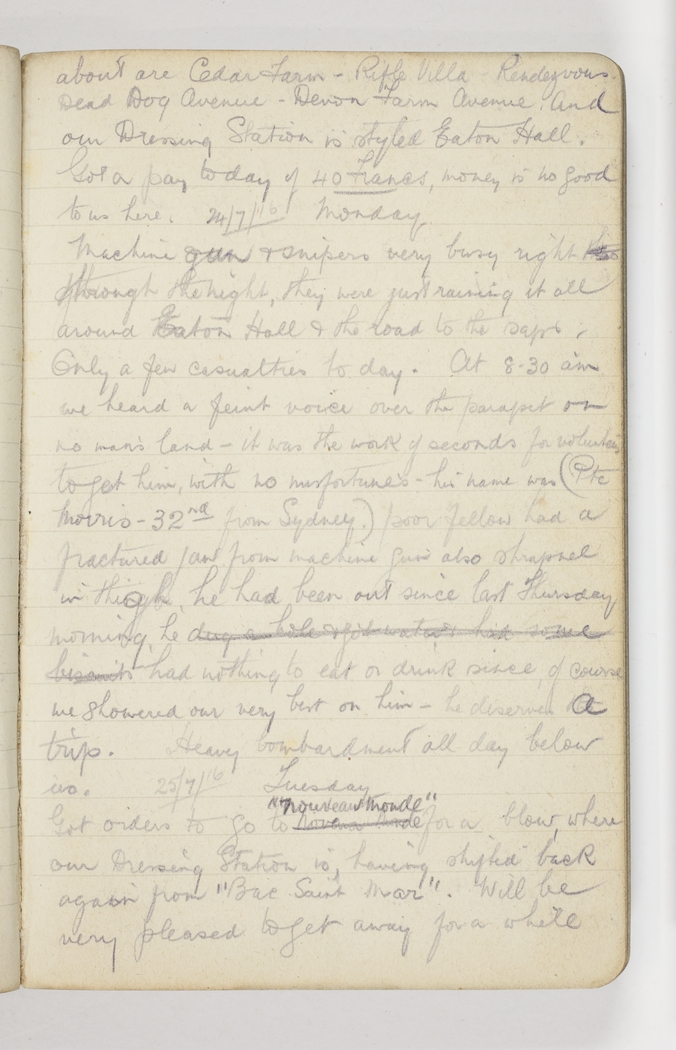 about are Cedar Farm - Rifle Villa - Rendezvous -
Dead Dog Avenue - Devon Farm Avenue. And
our Dressing Station is styled Eaton Hall.
Got a pay today of 40 Francs, money is no good
to us here. 24/7/16 Monday
Machine gun & snipers very busy right
through the night, they were just raining it all
around Eaton Hall & the road to the saps.
Only a few casualties to day. At 8-30 am
we heard a feint voice over the parapet on
no mans land - it was the work of seconds for volunteers
to get him, with no misfortunes - his name was (Pte
Morris - 32nd from Sydney.) poor fellow had a
fractured jaw from machine gun also shrapnel
in thigh, he had been out since last Thursday
morning, he dug a hole & got water & had some
biscuits had nothing to eat or drink since, of course
we showered our very best on him - he deserves a
trip. Heavy bombardment all day below
us. 25/7/16 Tuesday
"nouveau monde"
Got orders to go to for a blow, where
our Dressing Station is, having shifted back
again from "Bac Saint Mar". Will be
very pleased to get away for a while